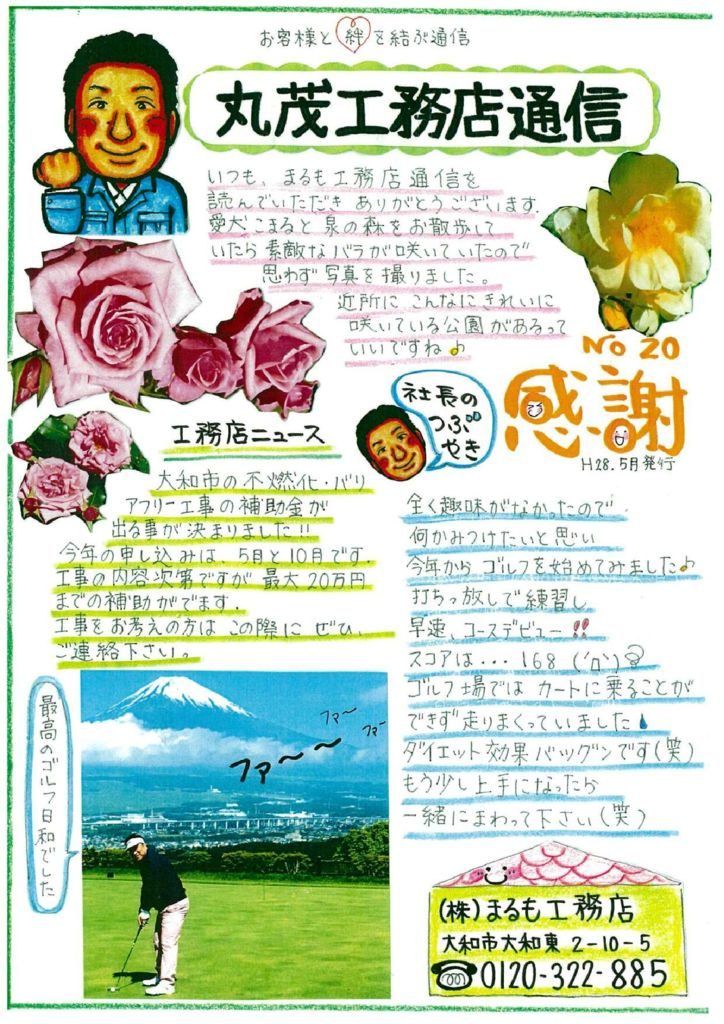 お客様と絆を結ぶ通信
丸茂工務店通信
いつも、まるも工務店通信を
読んでいただき ありがとうございます。
愛犬こまると 泉の森をお散歩して
いたら 素敵なバラが咲いていたので
思わず写真を撮りました。
近所に こんなにきれいに
咲いている公園があるって
いいですね♪
No 20
感謝
H28.5月発行
工務店ニュース
大和市の不燃化・バリ
アフリー工事の補助金が
出る事が決まりました!!
今年の申し込みは、5月と10月です。
工事の内容次第ですが 最大20万円
までの補助がでます。
工事をお考えの方は この際に ぜひ、
ご連絡下さい。
社長の
つぶ
やき
全く趣味がなかったので
何かみつけたいと思い
今年から ゴルフを始めてみました♪
打ちっ放しで練習し
早速、コースデビュー!!
スコアは・・・168 (´ロ`)
ゴルフ場では カートに乗ることが
できず 走りまくっていました
ダイエット効果バッグンです(笑)
もう少し上手になったら
一緒にまわって下さい(笑)
最高のゴルフ日和でした
ファ〜〜
ファ〜
ファ〜
(株)まるも工務店
大和市大和東 2-10-5
☎0120-322-885